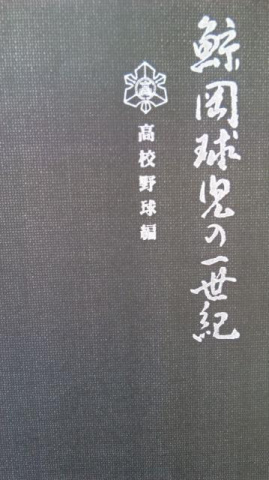 鯨岡球児の一世紀
高校野球編
高